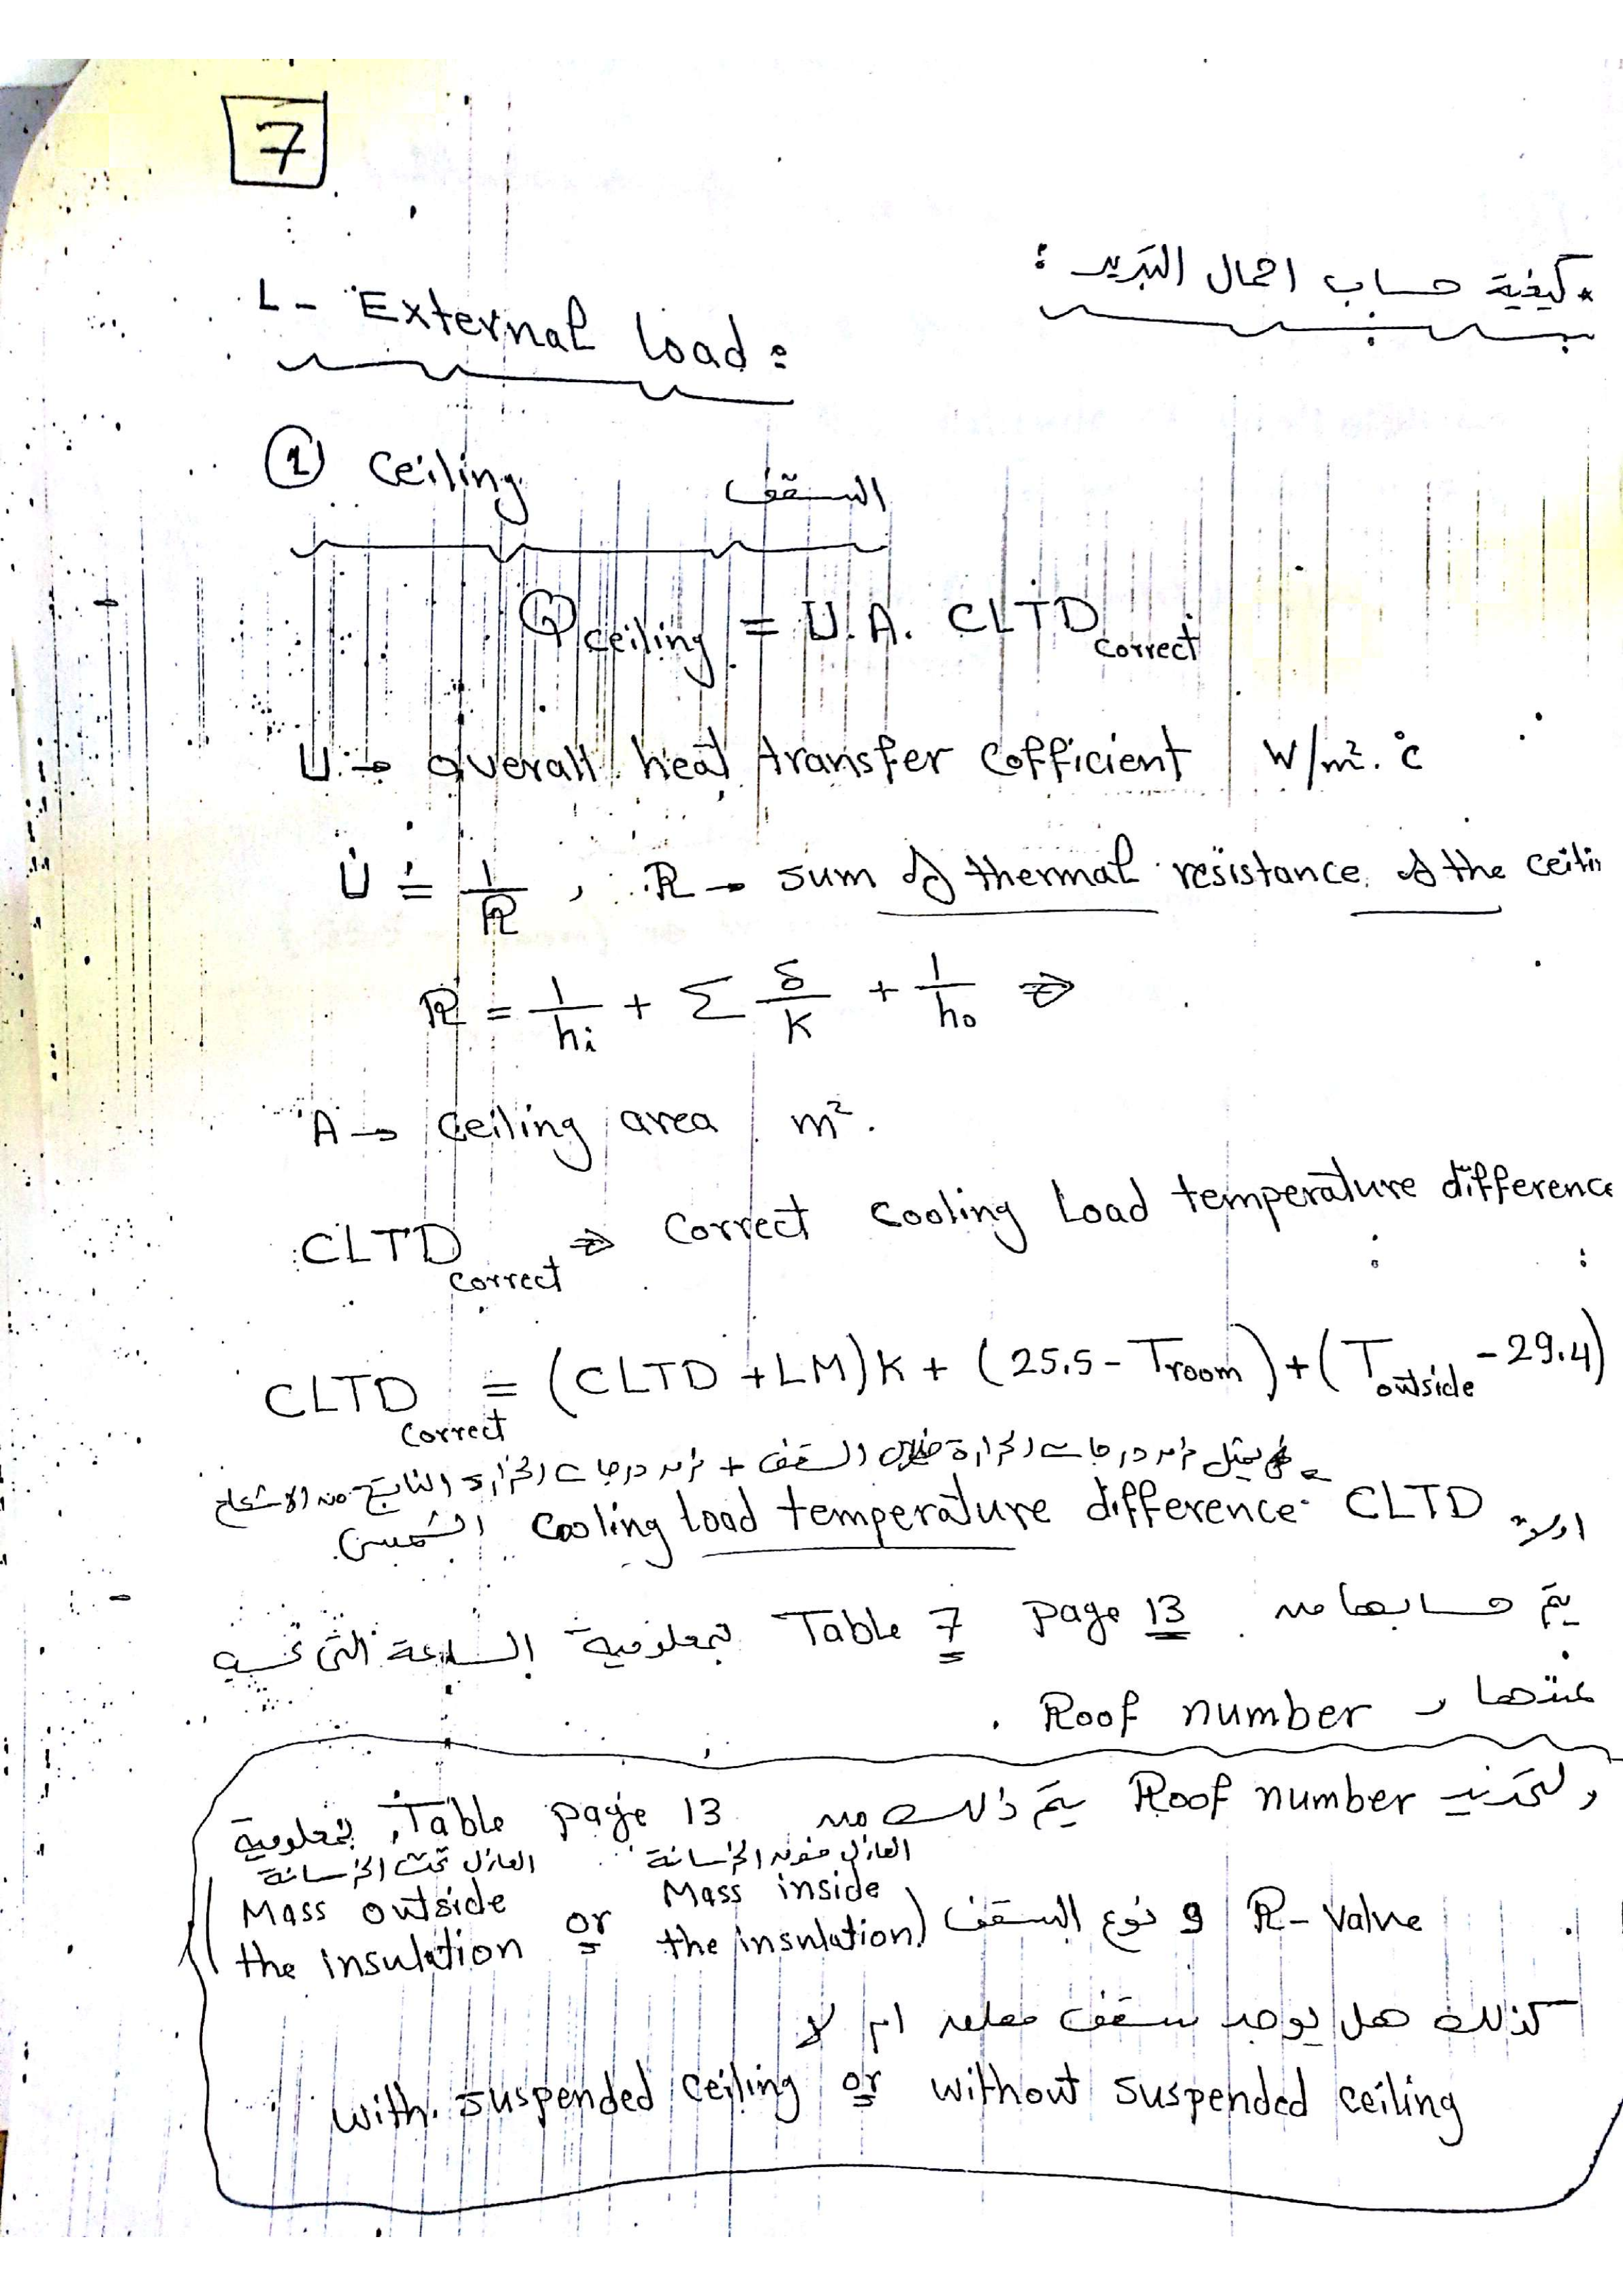 7
* كيفية حساب احمال التبريد :
1- External load :
① Ceiling السقف
Qceiling = U.A. CLTDcorrect
U → overall heat transfer cofficient W/m².°C
U = 1/R , R → sum of thermal resistance of the ceilin
R = 1/hi + Σ δ/K + 1/ho ⇒
A → Ceiling area m².
CLTDcorrect ⇒ Correct Cooling Load temperature difference
CLTDcorrect = (CLTD + LM)K + (25.5 - Troom) + (Toutside - 29.4)
يمثل فرق درجات الحرارة خلال السقف + فرق درجات الحرارة الناتج من الاشعاع
الشمسى
اولاً CLTD = Cooling load temperature difference
يتم حسابها من Table 7 page 13 بمعلومية الساعة التى نحسب
عندها و Roof number .
ولتحديد Roof number يتم ذلك من Table page 13 , بمعلومية
العازل فوق الخرسانة العازل تحت الخرسانة
R-Value و نوع السقف (Mass outside the insulation or Mass inside the insulation)
كذلك هل يوجد سقف معلق ام لا
with suspended ceiling or without suspended ceiling